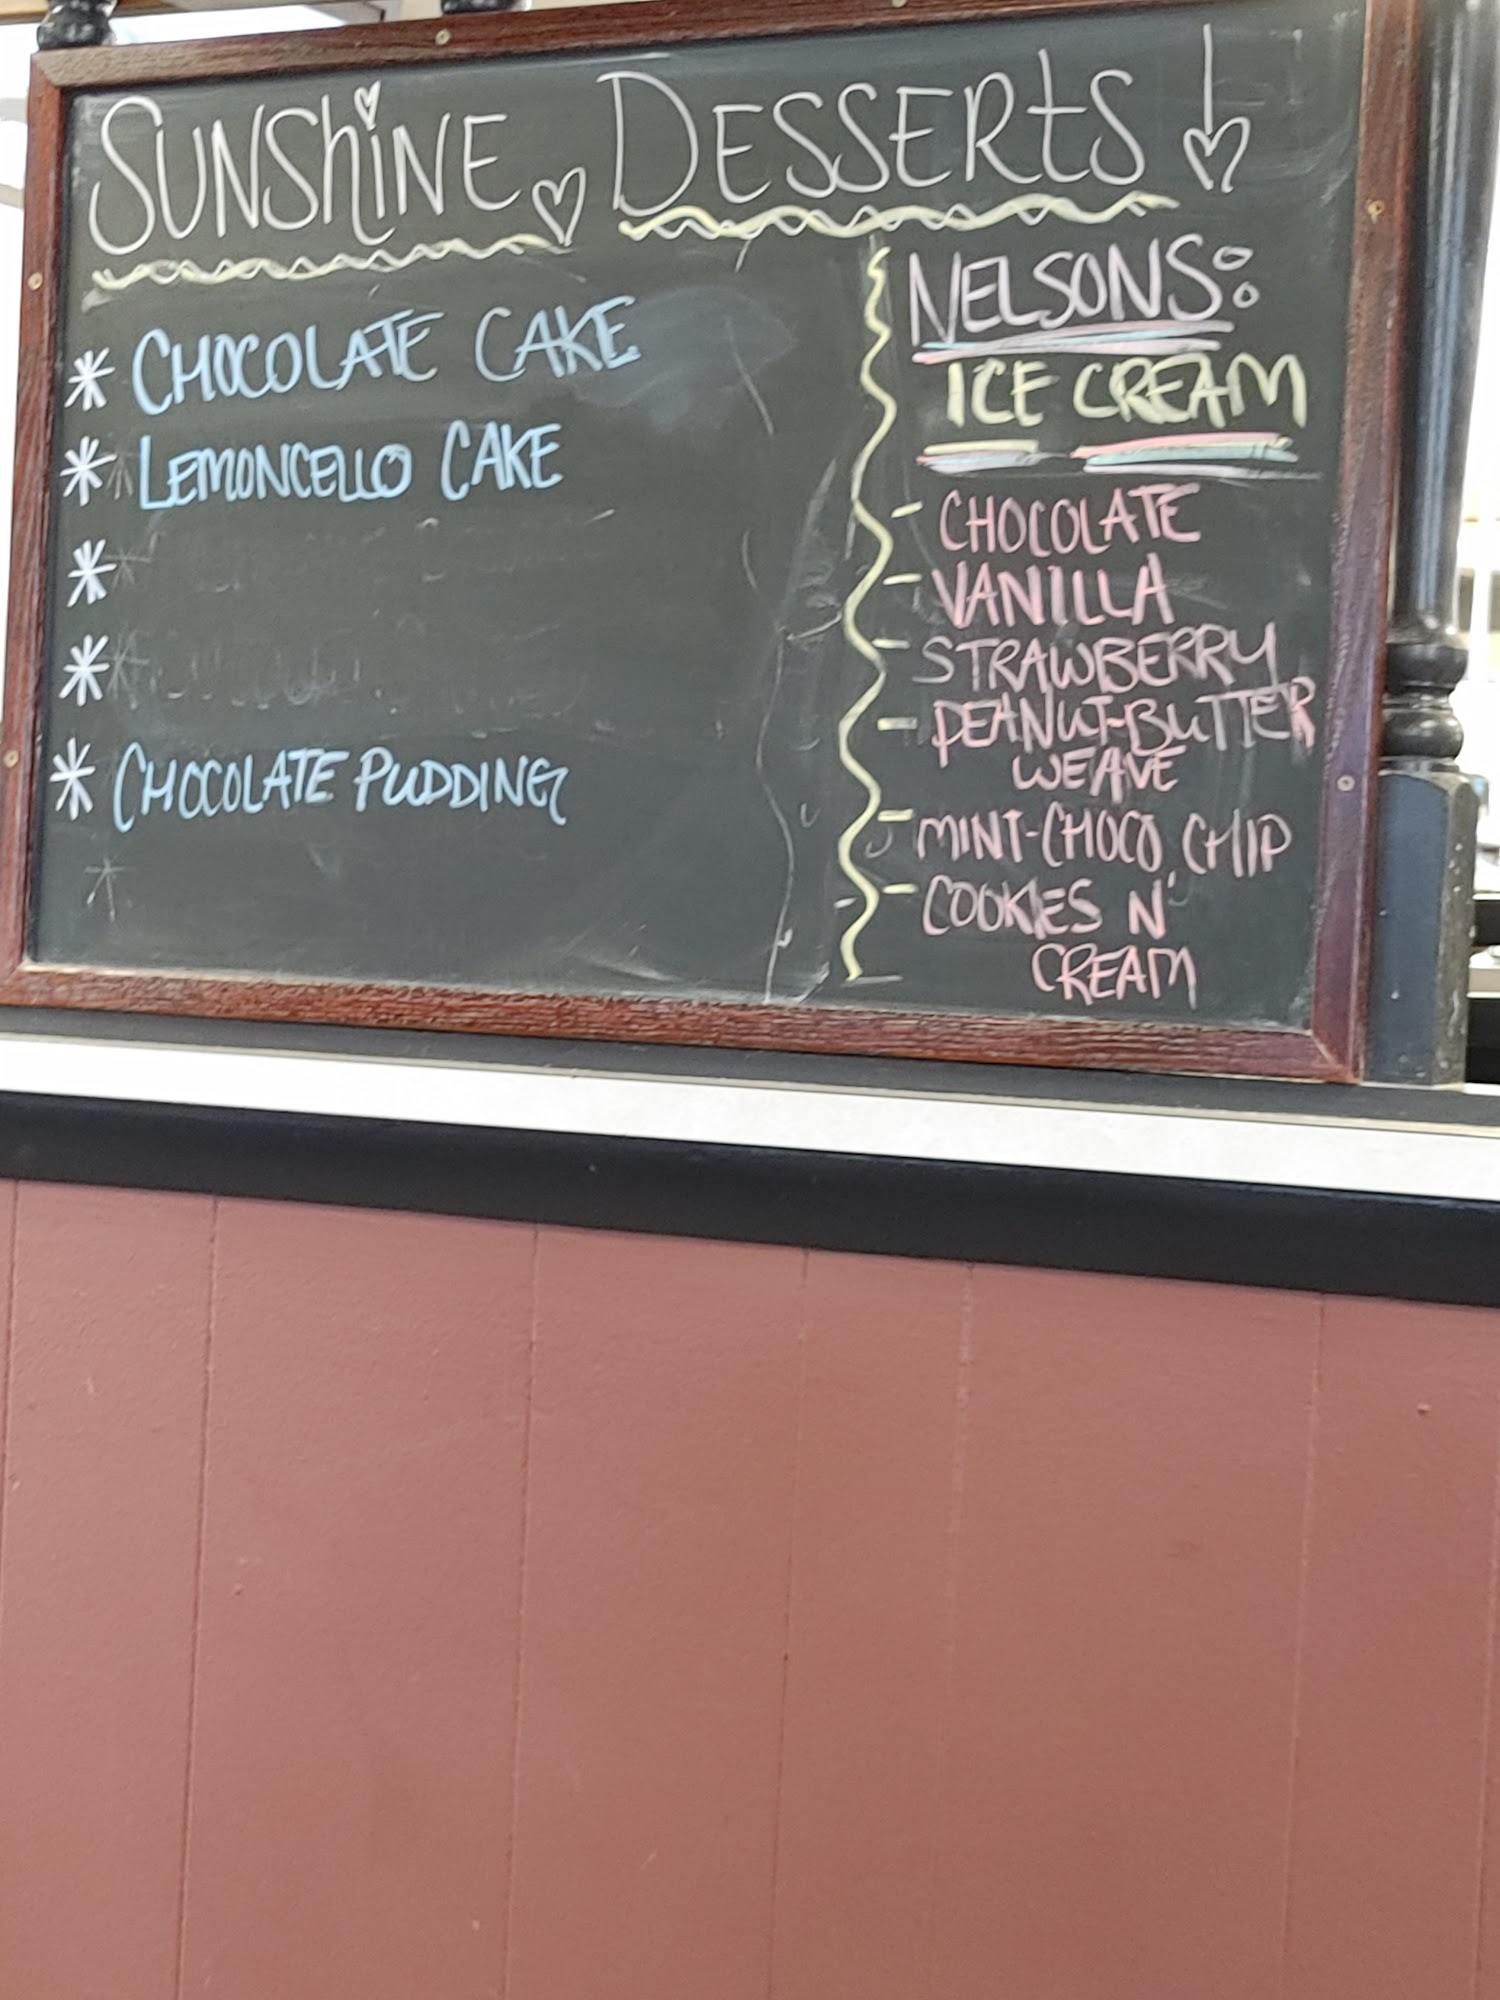 SUNShiNE DESSERtS!
* CHOCOLATE CAKE
* LEMONCELLO CAKE
*
*
* CHOCOLATE PUDDING
NELSONS:
ICE CREAM
- CHOCOLATE
- VANILLA
- STRAWBERRY
- PEANUT-BUTTER
WEAVE
- MINT-CHOCO CHIP
- COOKIES N'
CREAM